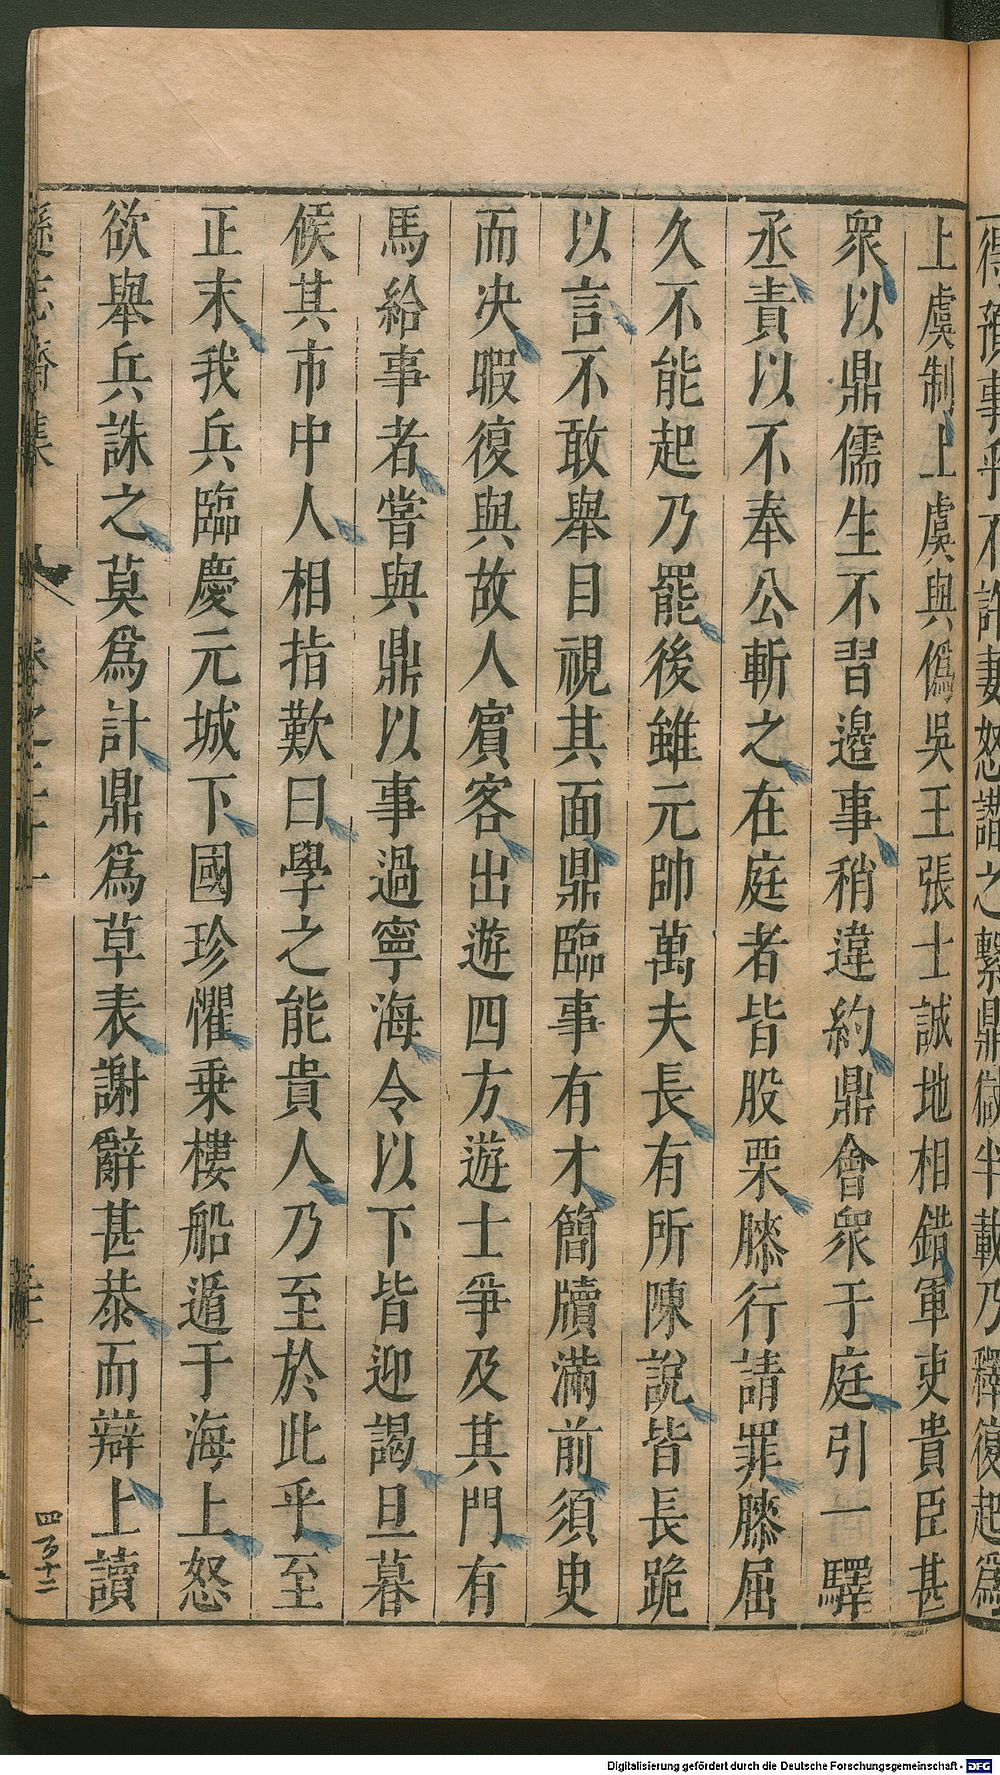 得預事乎不許妻怒譖之繫鼎獄半載乃釋復起爲
上虞制上虞與僞吳王張士誠地相錯軍吏貴臣甚
衆以鼎儒生不習邉事稍違約鼎會衆于庭引一驛
丞責以不奉公斬之在庭者皆股栗膝行請罪膝屈
久不能起乃罷後雖元帥萬夫長有所陳說皆長跪
以言不敢舉目視其面鼎臨事有才簡牘滿前須臾
而决暇復與故人賓客出遊四方遊士爭及其門有
馬給事者嘗與鼎以事過寧海令以下皆迎謁旦暮
候其市中人相指歎曰學之能貴人乃至於此乎至
正末我兵臨慶元城下國珍懼乗樓船遁于海上怒
欲舉兵誅之莫爲計鼎爲草表謝辭甚恭而辯上讀
遜志齋集
卷之二十一
四百十二
Digitalisierung gefördert durch die Deutsche Forschungsgemeinschaft - DFG